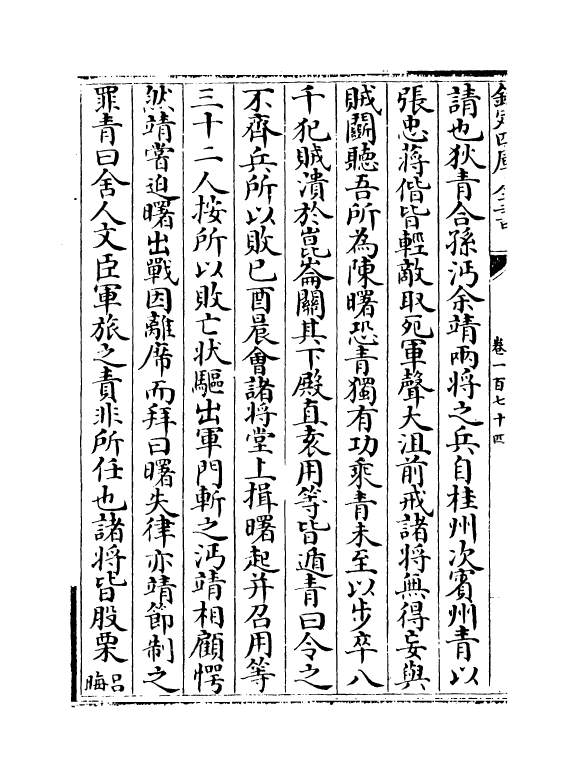 欽定四庫全書
卷一百七十四
請也狄青合孫沔余靖兩将之兵自桂州次賓州青以
張忠蔣偕皆輕敵取死軍聲大沮前戒諸將無得妄與
賊鬬聽吾所為陳曙恐青獨有功乘青未至以步卒八
千犯賊潰於崑崙關其下殿直袁用等皆遁青曰令之
不齊兵所以敗已酉晨㑹諸将堂上揖曙起并召用等
三十二人按所以敗亡状驅出軍門斬之沔靖相顧愕
然靖嘗迫曙出戰因離席而拜曰曙失律亦靖節制之
罪青曰舍人文臣軍旅之責非所任也諸将皆股栗吕
晦